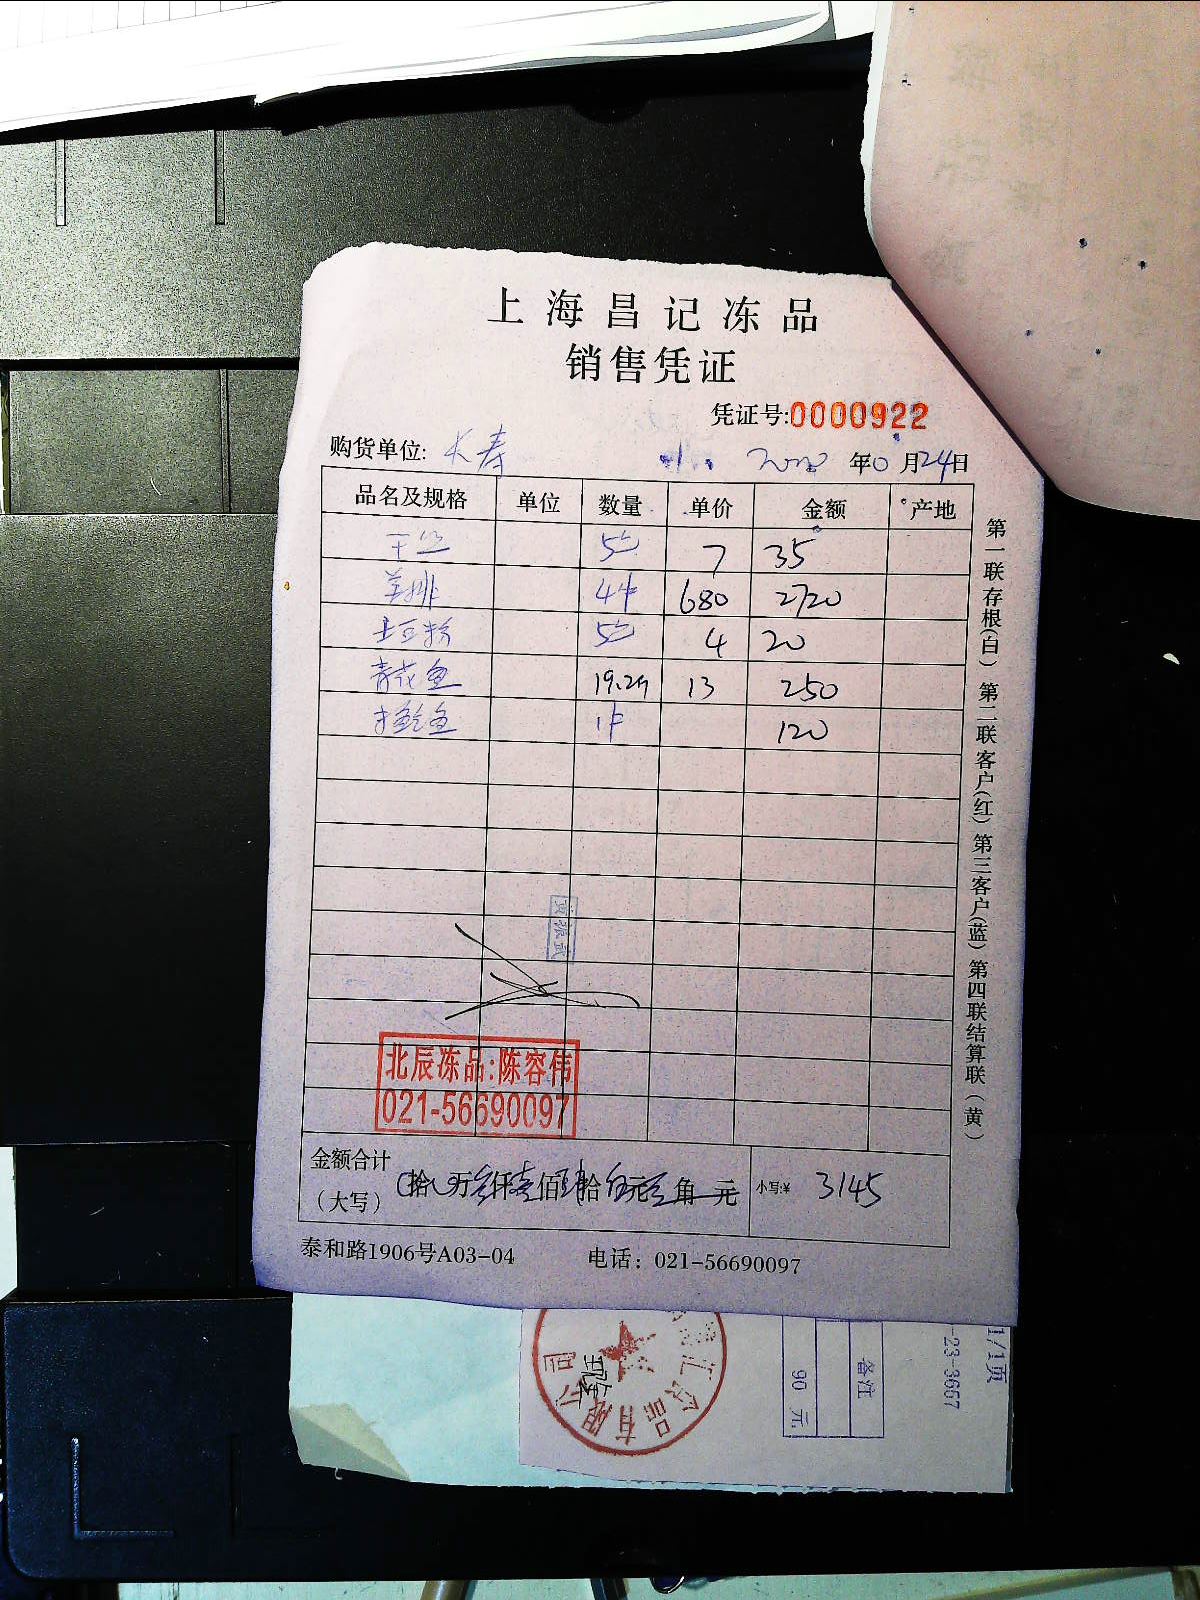 上海昌记冻品
销售凭证
凭证号:0000922
购货单位: 长寿 年0月24日
品名及规格 单位 数量 单价 金额 产地
干丝 5包 7 35
羊排 4件 680 2720
土豆粉 5包 4 20
青花鱼 19.2斤 13 250
鱼 1件 120
北辰冻品:陈容伟
021-56690097
金额合计
(大写) 拾 万叁仟壹佰肆拾伍元 角 元 小写:¥ 3145
泰和路1906号A03-04 电话: 021-56690097
第一联存根(白) 第二联客户(红) 第三客户(蓝) 第四联结算联(黄)
1/1页
-23-3667
备注
90 元
品有限公司